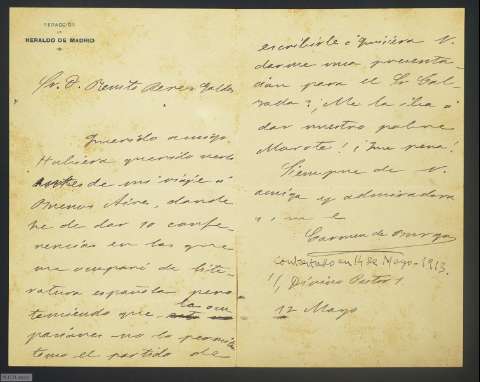 REDACCIÓN
DE
HERALDO DE MADRID
Sr. D. Benito Perez Galdós
Querido amigo:
Hubiera querido verle
antes de mi viaje á
Buenos Aires, donde
he de dar 10 confe-
rencias en las que
me ocuparé de lite-
ratura española pero
temiendo que las ocu
paciones no lo permitan
tomo el partido de
escribirle ¿Quisiera V.
darme una presenta-
ción para el Sr Cal-
zada? ¡Me la iba á
dar nuestro pobre
Morote! ¡Qué pena!
Siempre de V.
amiga y admiradora
q. s. m. e
Carmen de Burgos
Contestado en 14 de Mayo-1913.
Divino Pastor 1
12 Mayo